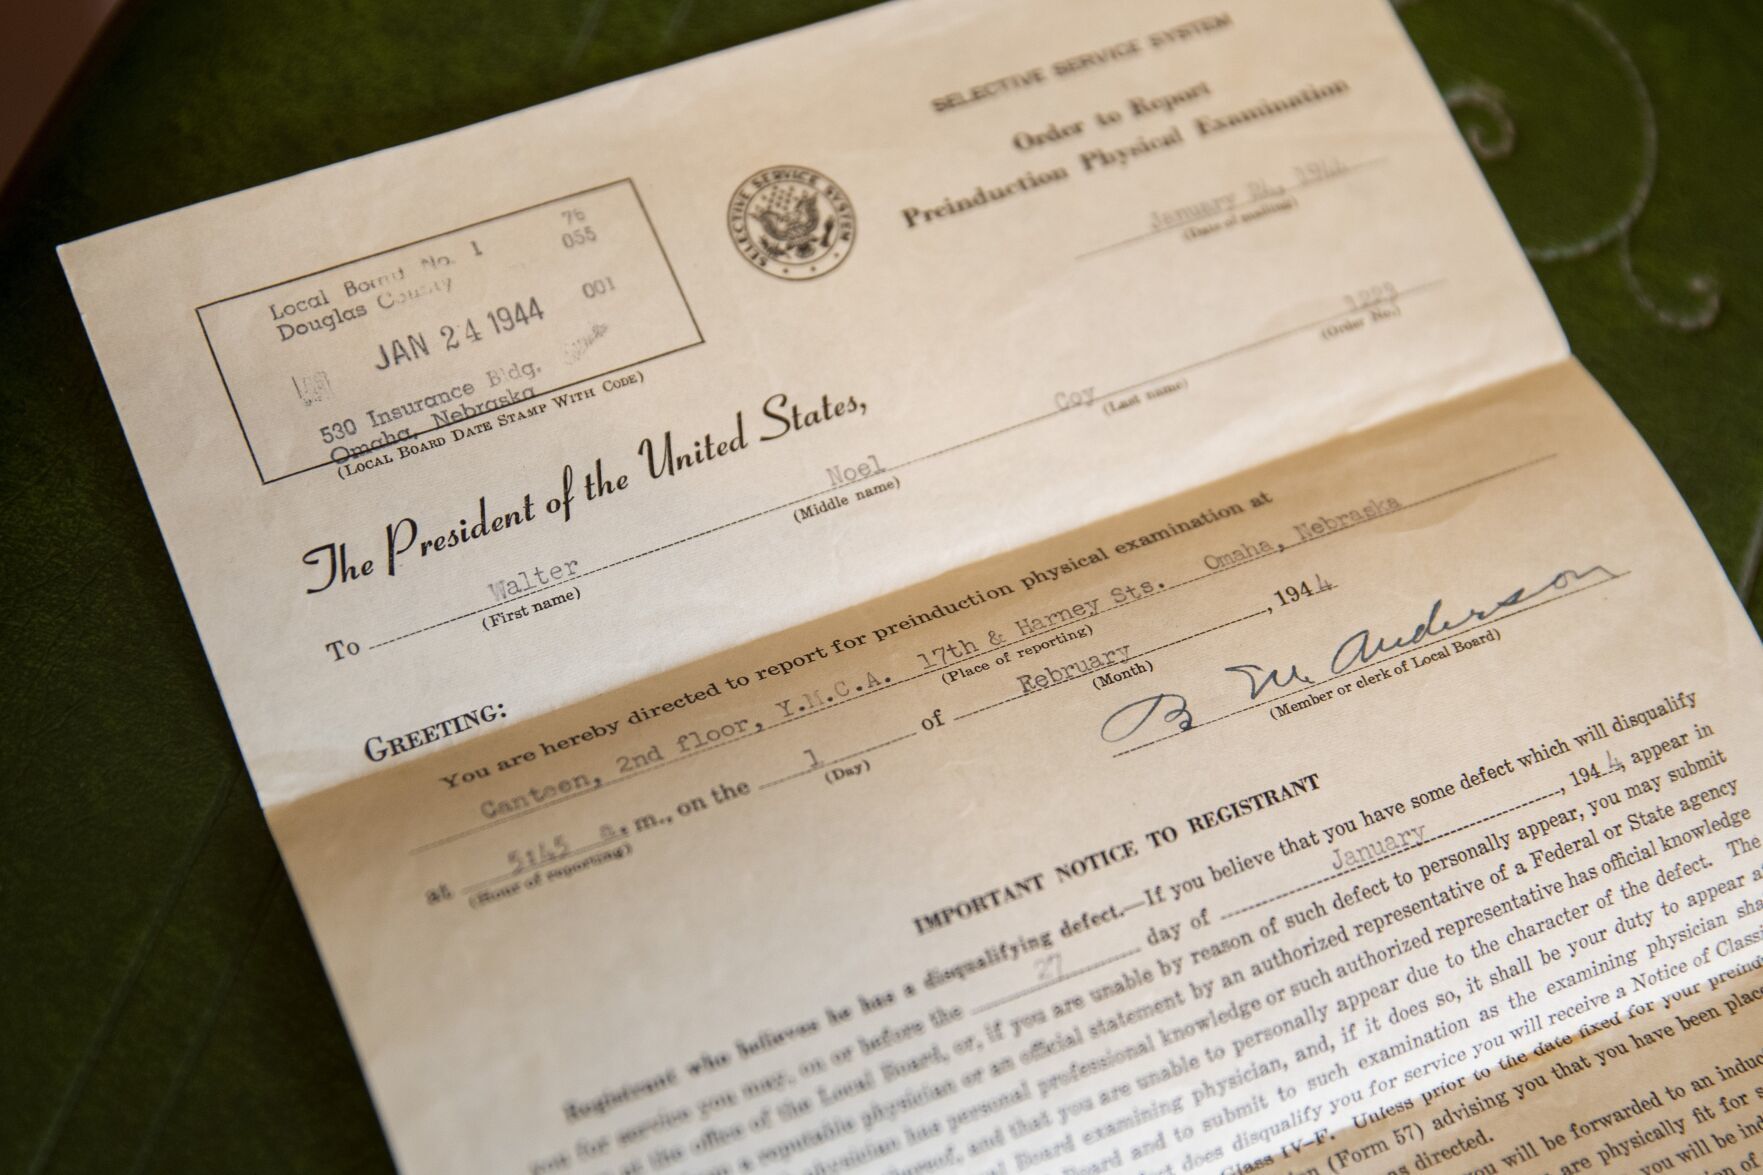 SELECTIVE SERVICE SYSTEM
Order to Report
Preinduction Physical Examination
SELECTIVE SERVICE SYSTEM
January 24, 1944
(Date of mailing)
Local Board No. 1 76
Douglas County 055
JAN 24 1944 001
530 Insurance Bldg.
Omaha, Nebraska
(LOCAL BOARD DATE STAMP WITH CODE)
(Order No.)
The President of the United States,
To Walter Noel Coy
(First name) (Middle name) (Last name)
GREETING:
You are hereby directed to report for preinduction physical examination at
Canteen, 2nd floor, Y.M.C.A. 17th & Harney Sts. Omaha, Nebraska
(Place of reporting)
at 5:45 a. m., on the 1 of Rebruary, 1944
(Hour of reporting) (Day) (Month)
B M Anderson
(Member or clerk of Local Board)
IMPORTANT NOTICE TO REGISTRANT
Registrant who believes he has a disqualifying defect.—If you believe that you have some defect which will disqualify
you for service you may, on or before the 27 day of January, 1944, appear in
at the office of the Local Board, or, if you are unable by reason of such defect to personally appear, you may submit
a reputable physician or an official statement by an authorized representative of a Federal or State agency
physician has personal professional knowledge or such authorized representative has official knowledge
thereof, and that you are unable to personally appear due to the character of the defect. The
Local Board examining physician, and, if it does so, it shall be your duty to appear
Board and to submit to such examination as the examining physician
does disqualify you for service you will receive a Notice of
Class IV–F. Unless prior to the date fixed for your
(Form 57) advising you that you have been
directed.
will be forwarded to an
are physically fit for
you will be